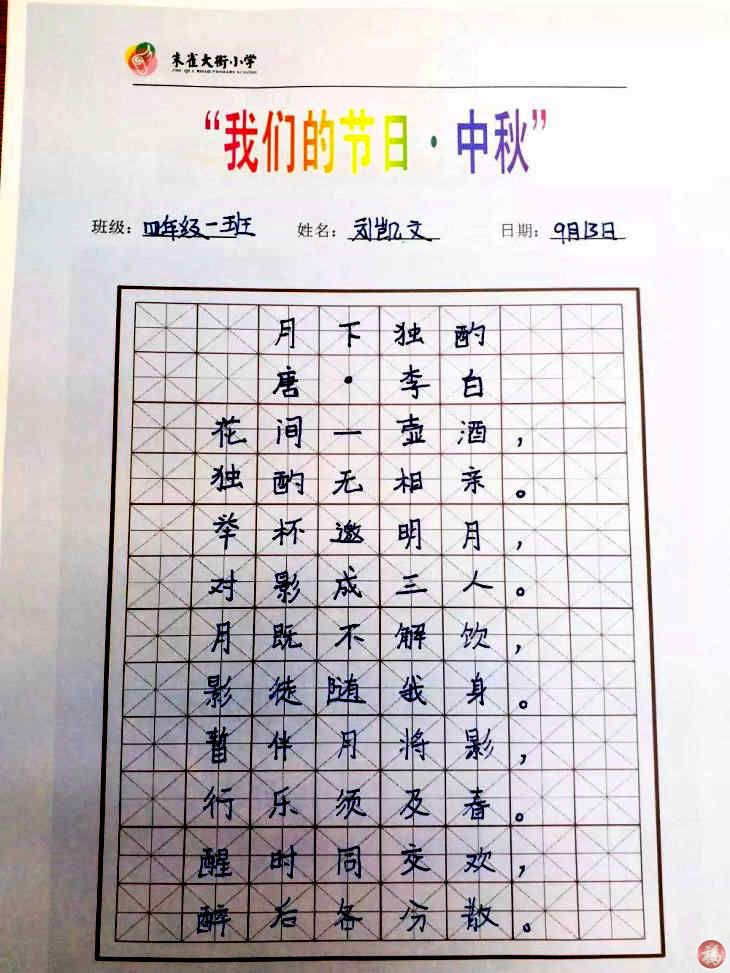 朱雀大街小学
ZHU QUE ROAD PRIMARY SCHOOL
“我们的节日·中秋”
班级：四年级一班 姓名：刘凯文 日期：9月13日
月下独酌
唐·李白
花间一壶酒，
独酌无相亲。
举杯邀明月，
对影成三人。
月既不解饮，
影徒随我身。
暂伴月将影，
行乐须及春。
醒时同交欢，
醉后各分散。
福